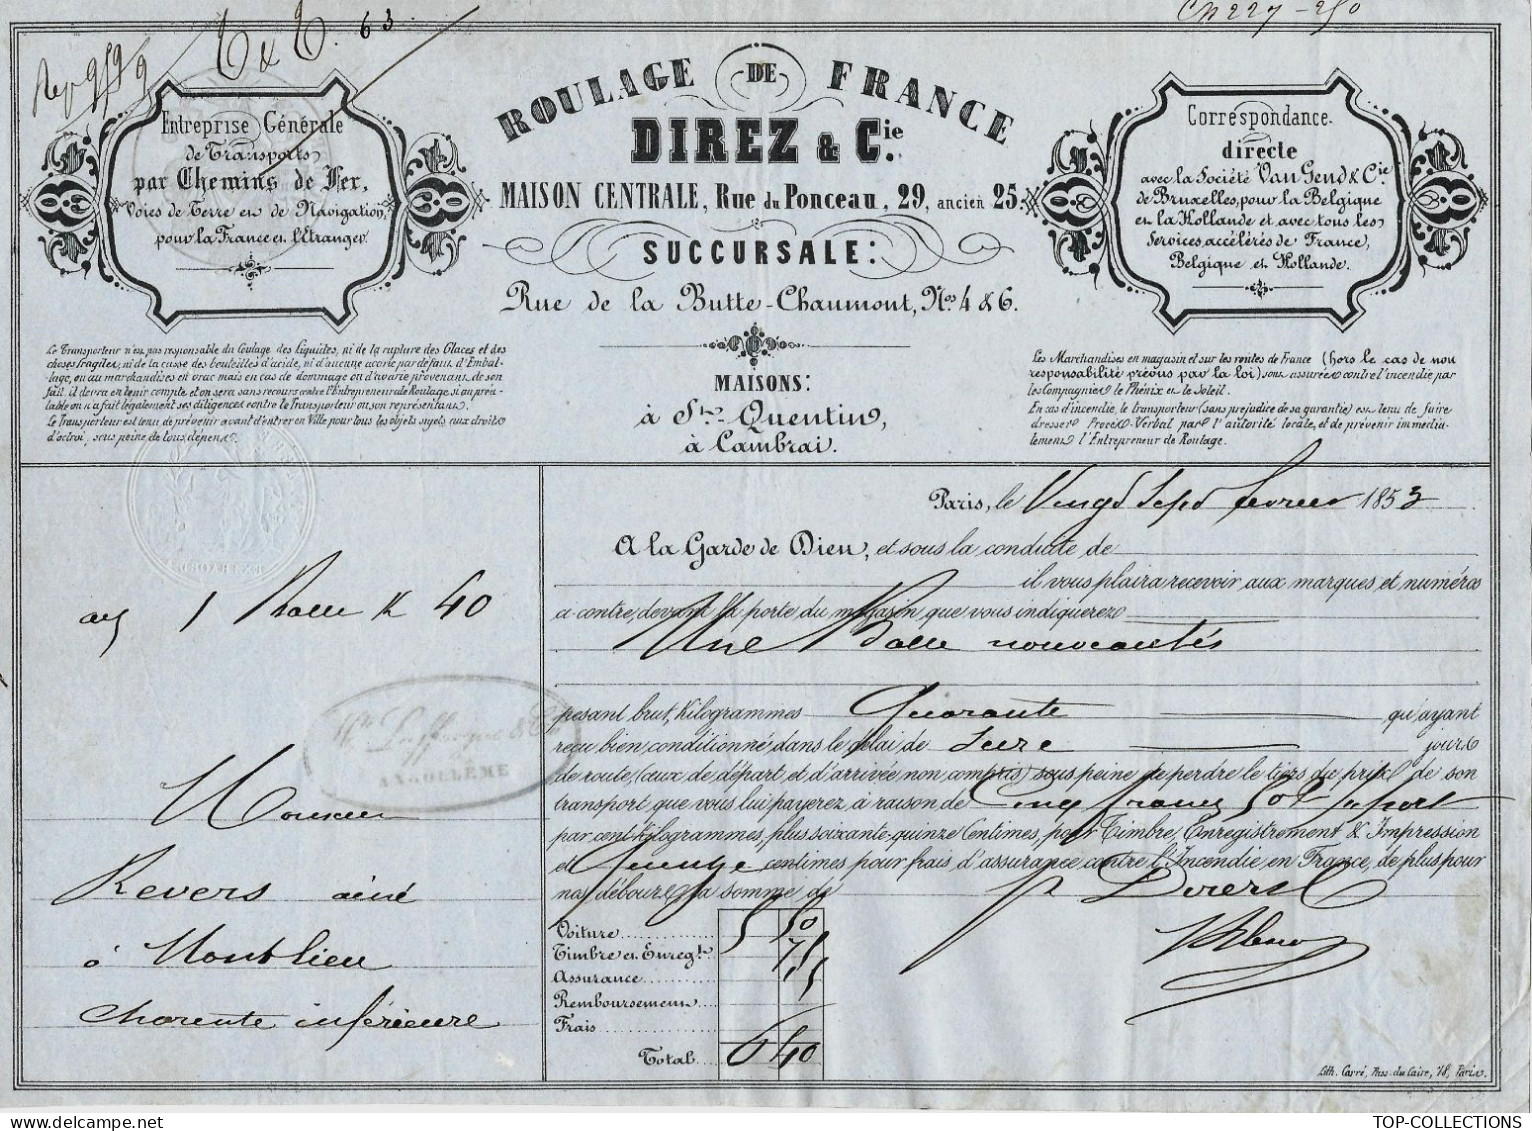 63
ROULAGE DE FRANCE
DIREZ & Cie.
MAISON CENTRALE, Rue du Ponceau, 29, ancien 25.
SUCCURSALE:
Rue de la Butte-Chaumont, Nos 4 & 6.
MAISONS:
à St-Quentin,
à Cambrai.
Entreprise Générale
de Transports
par Chemins de Fer,
Voies de Terre et de Navigation,
pour la France et l'Etranger.
Correspondance
directe
avec la Société Van Gend & Cie
de Bruxelles, pour la Belgique
et la Hollande et avec tous les
Services accélérés de France,
Belgique et Hollande.
Le Transporteur n'est pas responsable du Coulage des Liquides, ni de la rupture des Glaces et des
choses fragiles, ni de la casse des bouteilles d'acide, ni d'aucune avarie par défaut d'Embal-
lage, ou aux marchandises en vrac mais en cas de dommage ou d'avarie provenant de son
fait, il devra en tenir compte et on sera sans recours contre l'Entrepreneur de Roulage, si au préa-
lable on n'a fait légalement ses diligences contre le Transporteur ou son représentant.
Le Transporteur est tenu de prévenir avant d'entrer en Ville pour tous les objets sujets aux droits
d'octroi, sous peine de tous dépens.
Les Marchandises en magasin et sur les routes de France (hors le cas de non
responsabilité prévus par la loi) sont assurées contre l'incendie par
les Compagnies le Phénix et le Soleil.
En cas d'incendie, le transporteur (sans préjudice de sa garantie) est tenu de faire
dresser Procès-Verbal par l'autorité locale, et de prévenir immédia-
tement l'Entrepreneur de Roulage.
Paris, le Vingt Sept fevrier 1853
A la Garde de Dieu, et sous la conduite de
il vous plaira recevoir aux marques et numéros
ci-contre, devant la porte du magasin que vous indiquerez
Une Balle nouveautés
1 Balle K 40
pesant brut, Kilogrammes Quarante qu'ayant
reçu bien conditionné dans le délai de Seize jours
de route, (ceux de départ et d'arrivée non compris) sous peine de perdre le tiers du prix de son
transport que vous lui payerez, à raison de Cinq francs 50
par cent Kilogrammes, plus soixante-quinze Centimes, pour Timbre, Enregistrement & Impression
et Quinze centimes pour frais d'assurance contre l'Incendie en France, de plus pour
nos débours la somme de
ANGOULÊME
Monsieur
Revers ainé
à Montlieu
charente inférieure
Voiture 5 50
Timbre et Enregt. 75
Assurance 15
Remboursement
Frais
Total 6 40
Lith. Carré, Pass. du Caire, 78, Paris.
TOP-COLLECTIONS